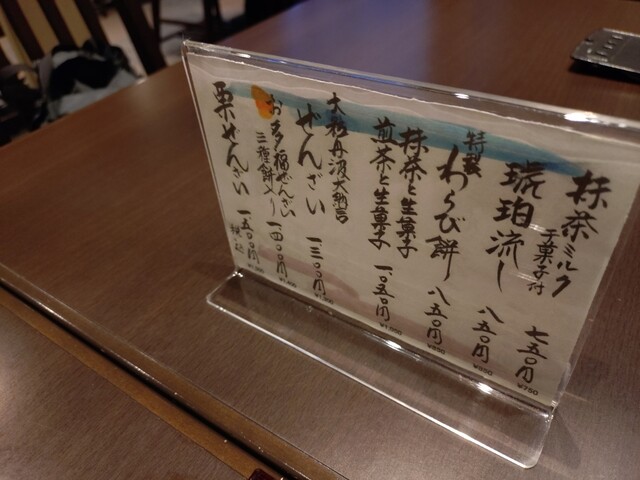 抹茶ミルク
干菓子付
七五〇円
¥750
琥珀流し
八五〇円
¥850
特製
わらび餅
八五〇円
¥850
抹茶と生菓子
煎茶と生菓子
一〇五〇円
大粒丹波大納言
ぜんざい
一三〇〇円
¥1,300
お多福ぜんざい
三種餅入り
一四〇〇円
¥1,400
栗ぜんざい
一五〇〇円
税込